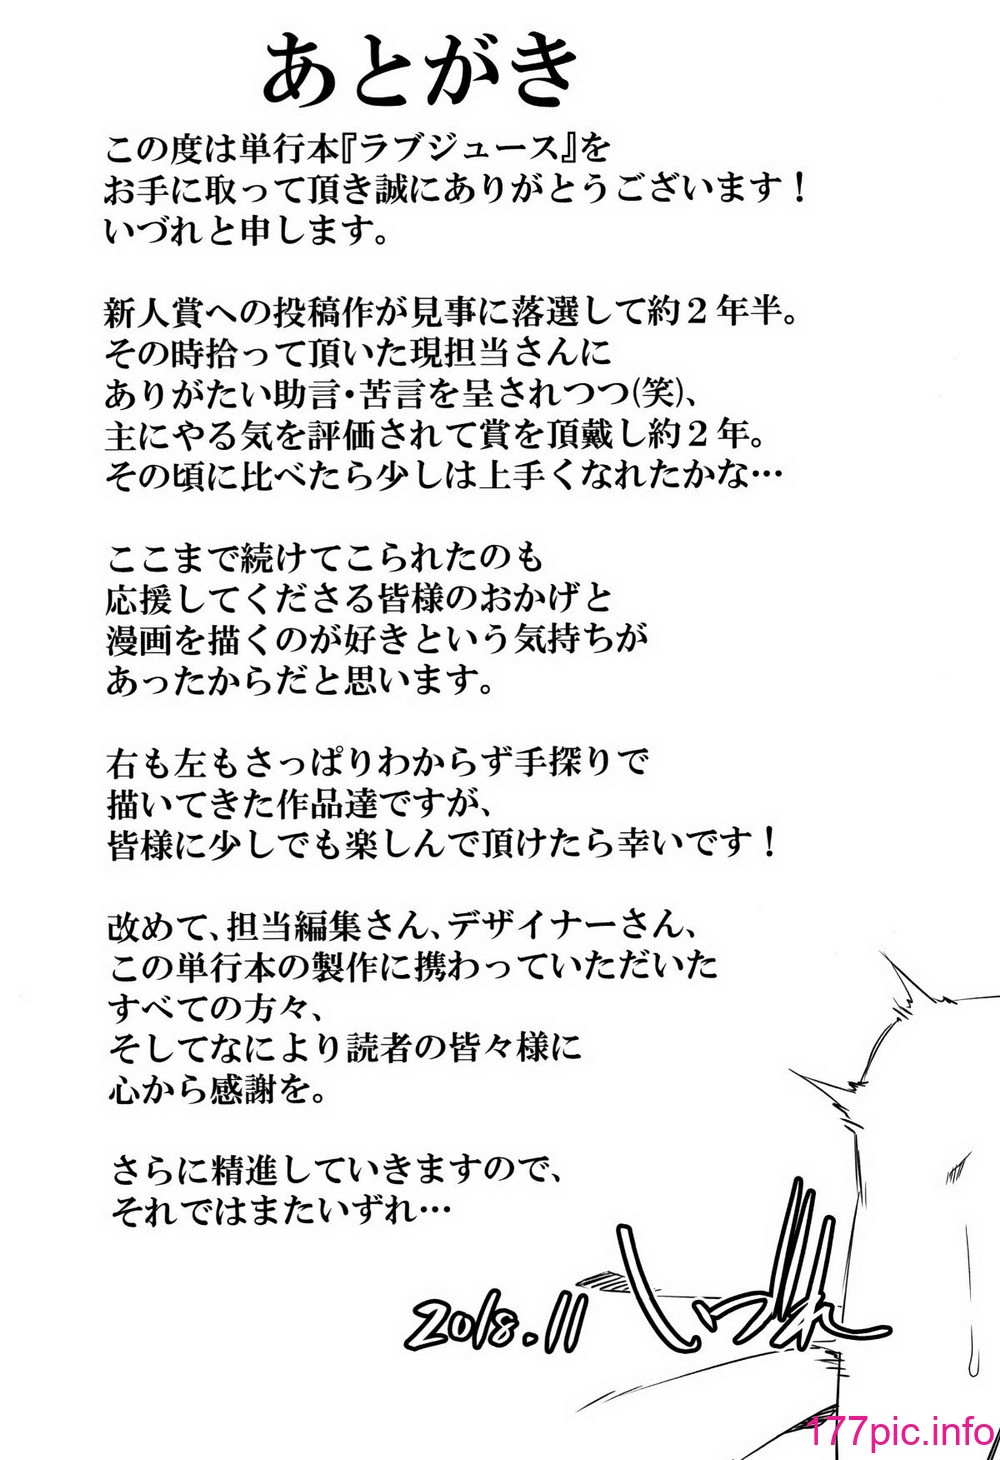 あとがき
この度は単行本『ラブジュース』を
お手に取って頂き誠にありがとうございます！
いづれと申します。
新人賞への投稿作が見事に落選して約２年半。
その時拾って頂いた現担当さんに
ありがたい助言・苦言を呈されつつ(笑)、
主にやる気を評価されて賞を頂戴し約２年。
その頃に比べたら少しは上手くなれたかな…
ここまで続けてこられたのも
応援してくださる皆様のおかげと
漫画を描くのが好きという気持ちが
あったからだと思います。
右も左もさっぱりわからず手探りで
描いてきた作品達ですが、
皆様に少しでも楽しんで頂けたら幸いです！
改めて、担当編集さん、デザイナーさん、
この単行本の製作に携わっていただいた
すべての方々、
そしてなにより読者の皆々様に
心から感謝を。
さらに精進していきますので、
それではまたいずれ…
2018.11 いづれ
177pic.info